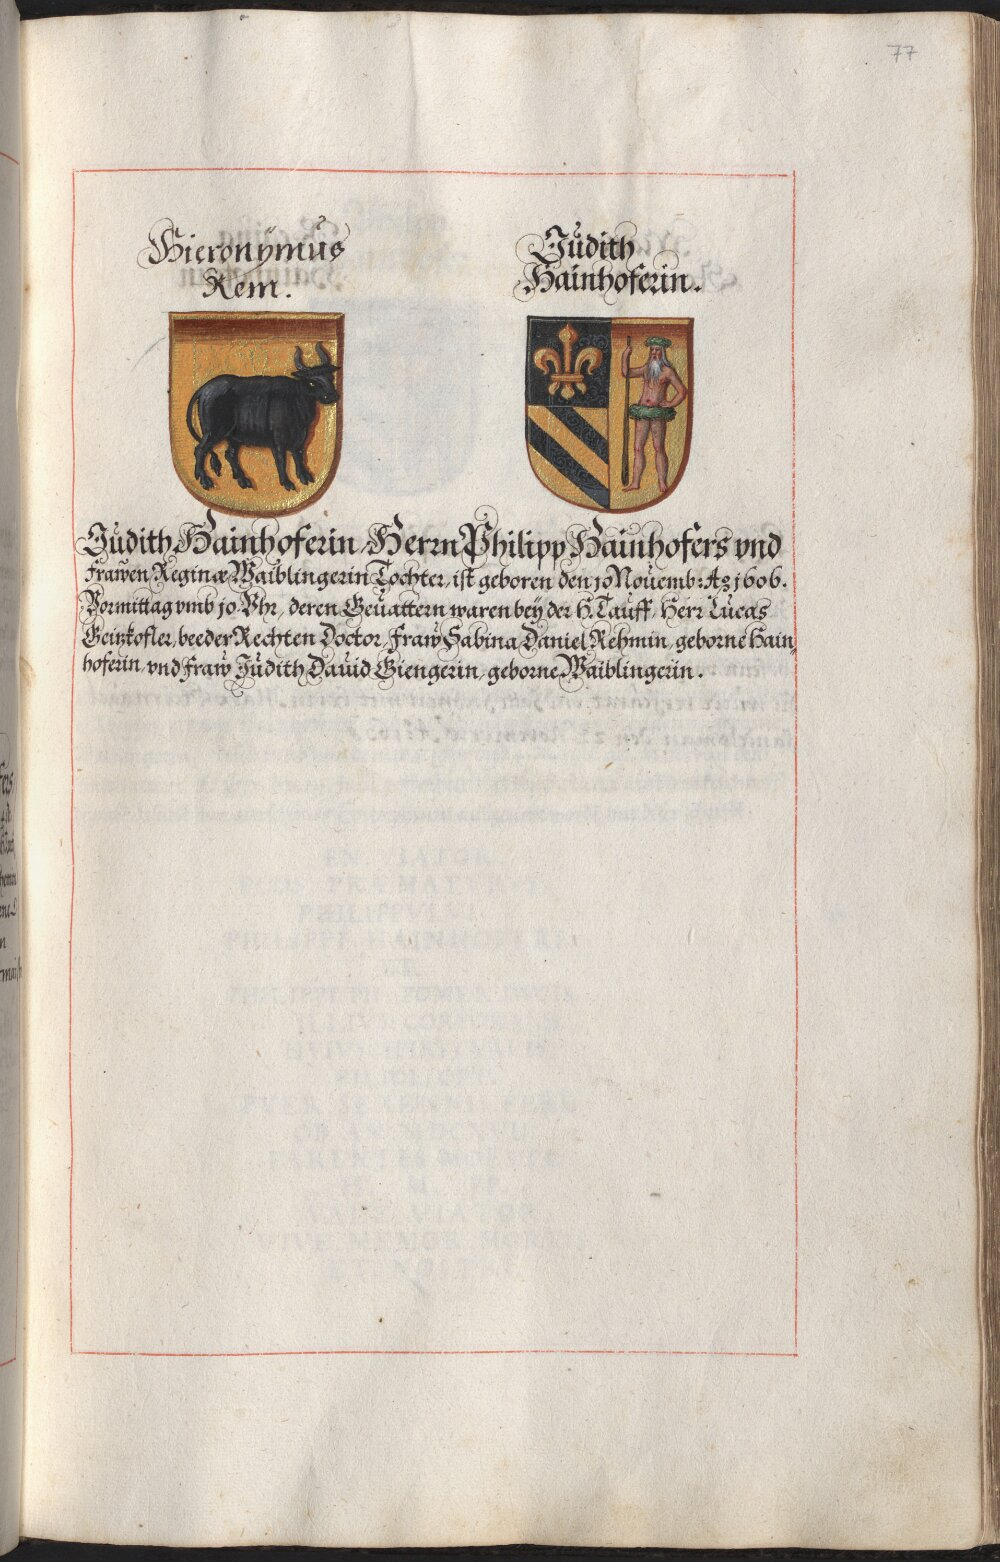 77
Hieronÿmus
Rem.
Judith
Hainhoferin.
Judith Hainhoferin, Herrn Philipp Hainhofers vnd
Frawen Reginæ Waiblingerin Tochter, ist geboren den 10 Nouemb: Aº 1606.
Vormittag vmb 10. Vhr, deren Geuattern waren beÿ der H. Tauff, Herr Lucas
Geizkofler, beeder Rechten Doctor, Fraw Sabina Daniel Rehmin, geborne Hain,
hoferin, vnd Fraw Judith Dauid Giengerin, geborne Waiblingerin.